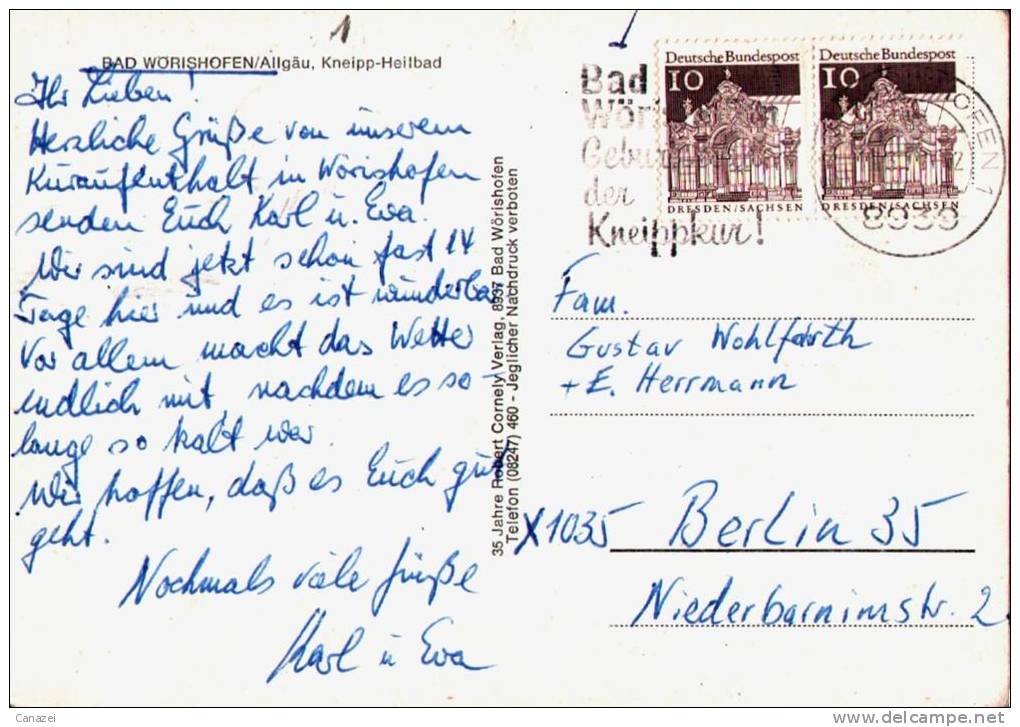 1
BAD WÖRISHOFEN/Allgäu, Kneipp-Heilbad
Ihr Lieben!
Herzliche Grüße von unserem
Kuraufenthalt in Wörishofen
senden Euch Karl u. Eva.
Wir sind jetzt schon fast 14
Tage hier und es ist wunderbar
Vor allem macht das Wetter
endlich mit, nachdem es so-
lange so kalt war.
Wir hoffen, daß es Euch gut
geht.
Nochmals viele Grüße
Karl u Eva
35 Jahre Robert Cornely Verlag, 8937 Bad Wörishofen
Telefon (08247) 460 - Jeglicher Nachdruck verboten
Bad
Geburt
der
Kneippkur!
Deutsche Bundespost
10
DRESDEN/SACHSEN
Deutsche Bundespost
10
DRESDEN/SACHSEN
OFEN 1
8939
Fam.
Gustav Wohlfarth
+ E. Herrmann
X1035 Berlin 35
Niederbarnimstr. 2
Canazei
www.delcampe.net